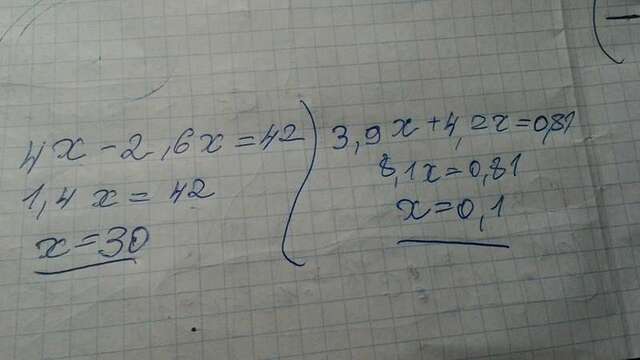 4x - 2,6x = 42
1,4x = 42
x = 30
3,9x + 4,2x = 0,81
8,1x = 0,81
x = 0,1